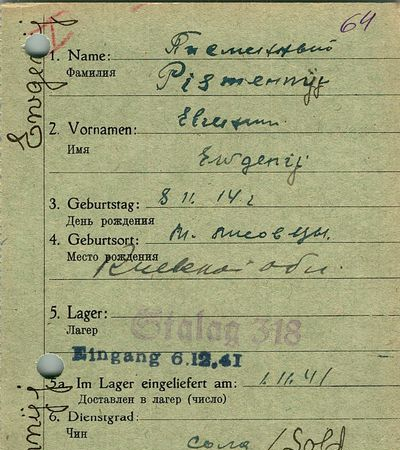 64
1. Name: Письменный
Фамилия
Pismennÿj
2. Vornamen: Евгений
Имя
Ewgenij
3. Geburtstag: 8 11. 14 г
День рождения
4. Geburtsort: м.
Место рождения Киевской обл.
5. Lager: Stalag 318
Лагер
Eingang 6.12.41
5a. Im Lager eingeliefert am: 1.11.41
Доставлен в лагер (число)
6. Dienstgrad:
Чин
/ Sold
Ewgenij